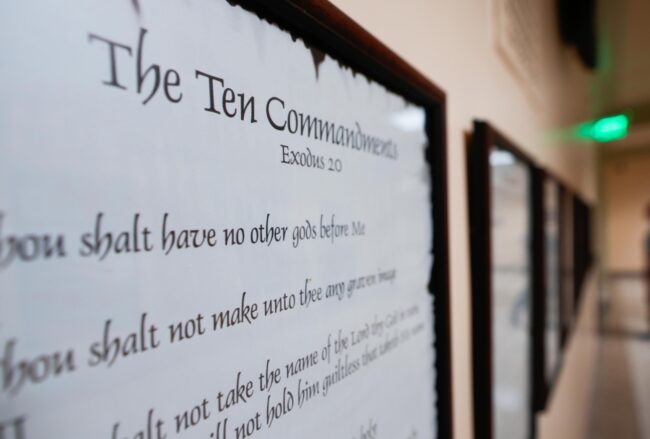 The Ten Commandments
Exodus 20
hou shalt have no other gods before Me
hou shalt not make unto thee any graven image
shalt not take the name of the Lord thy God in vain
ll not hold him guiltless that taketh his name